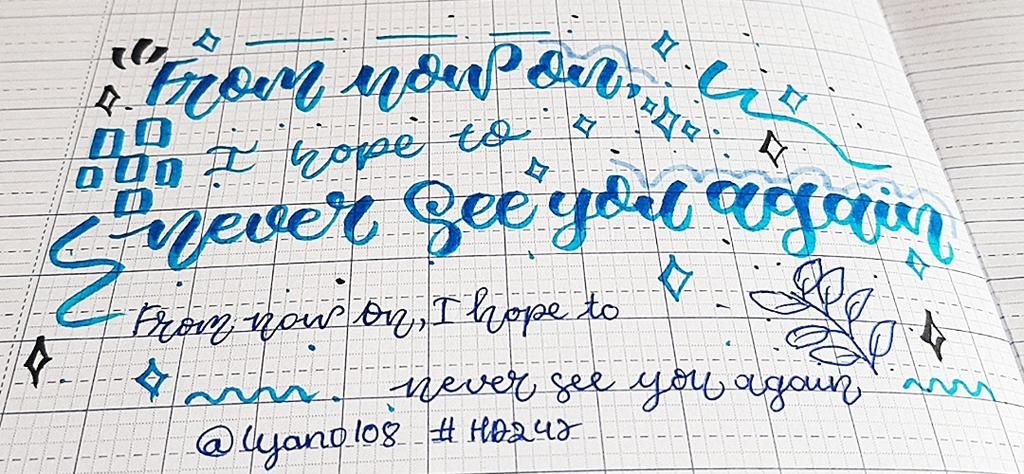 From now on,
I hope to
never see you again
From now on, I hope to
never see you again
@lyano108 #HD247